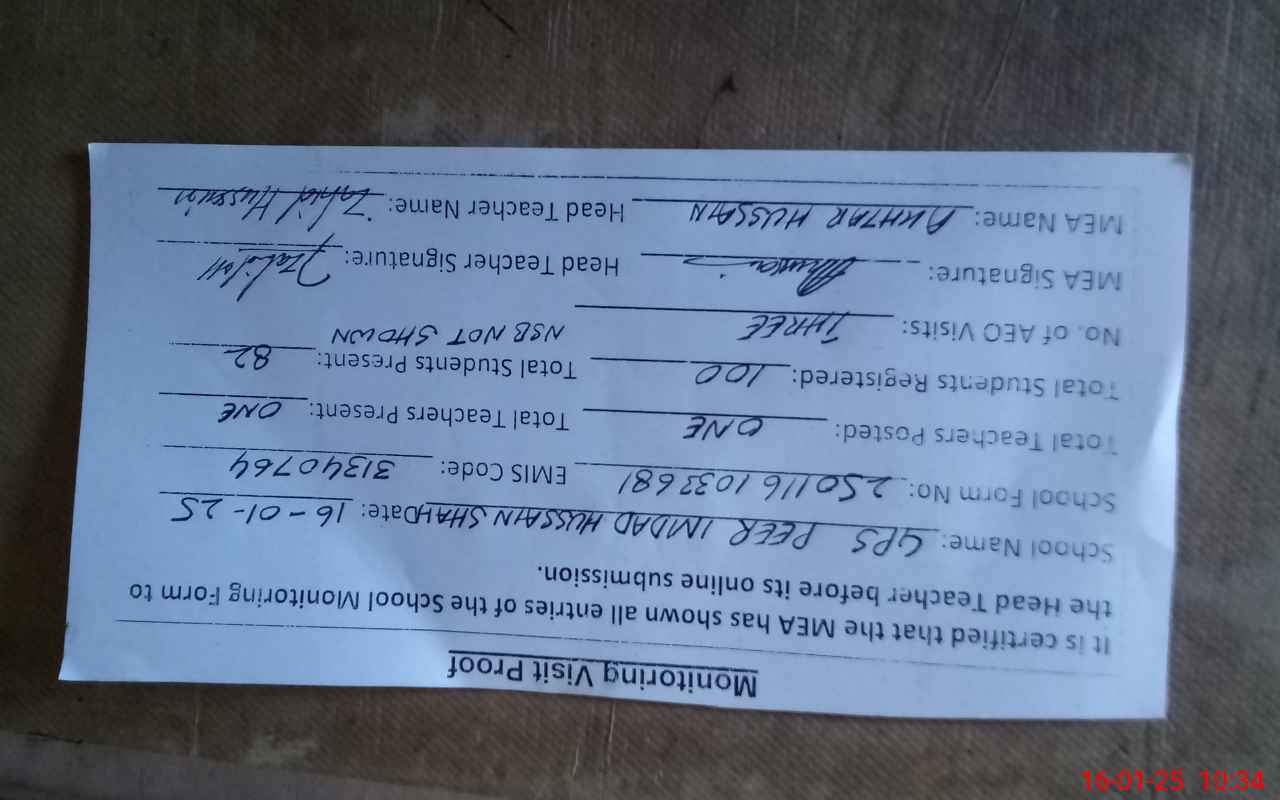 Monitoring Visit Proof
It is certified that the MEA has shown all entries of the School Monitoring Form to
the Head Teacher before its online submission.
School Name: GPS PEER IMDAD HUSSAIN SHAH Date: 16-01-25
School Form No: 2501161033681 EMIS Code: 31340764
Total Teachers Posted: ONE Total Teachers Present: ONE
Total Students Registered: 100 Total Students Present: 82
No. of AEO Visits: THREE NSB NOT SHOWN
MEA Signature: Head Teacher Signature:
MEA Name: AKHTAR HUSSAIN Head Teacher Name: Zahid Hussain
16-01-25 10:34